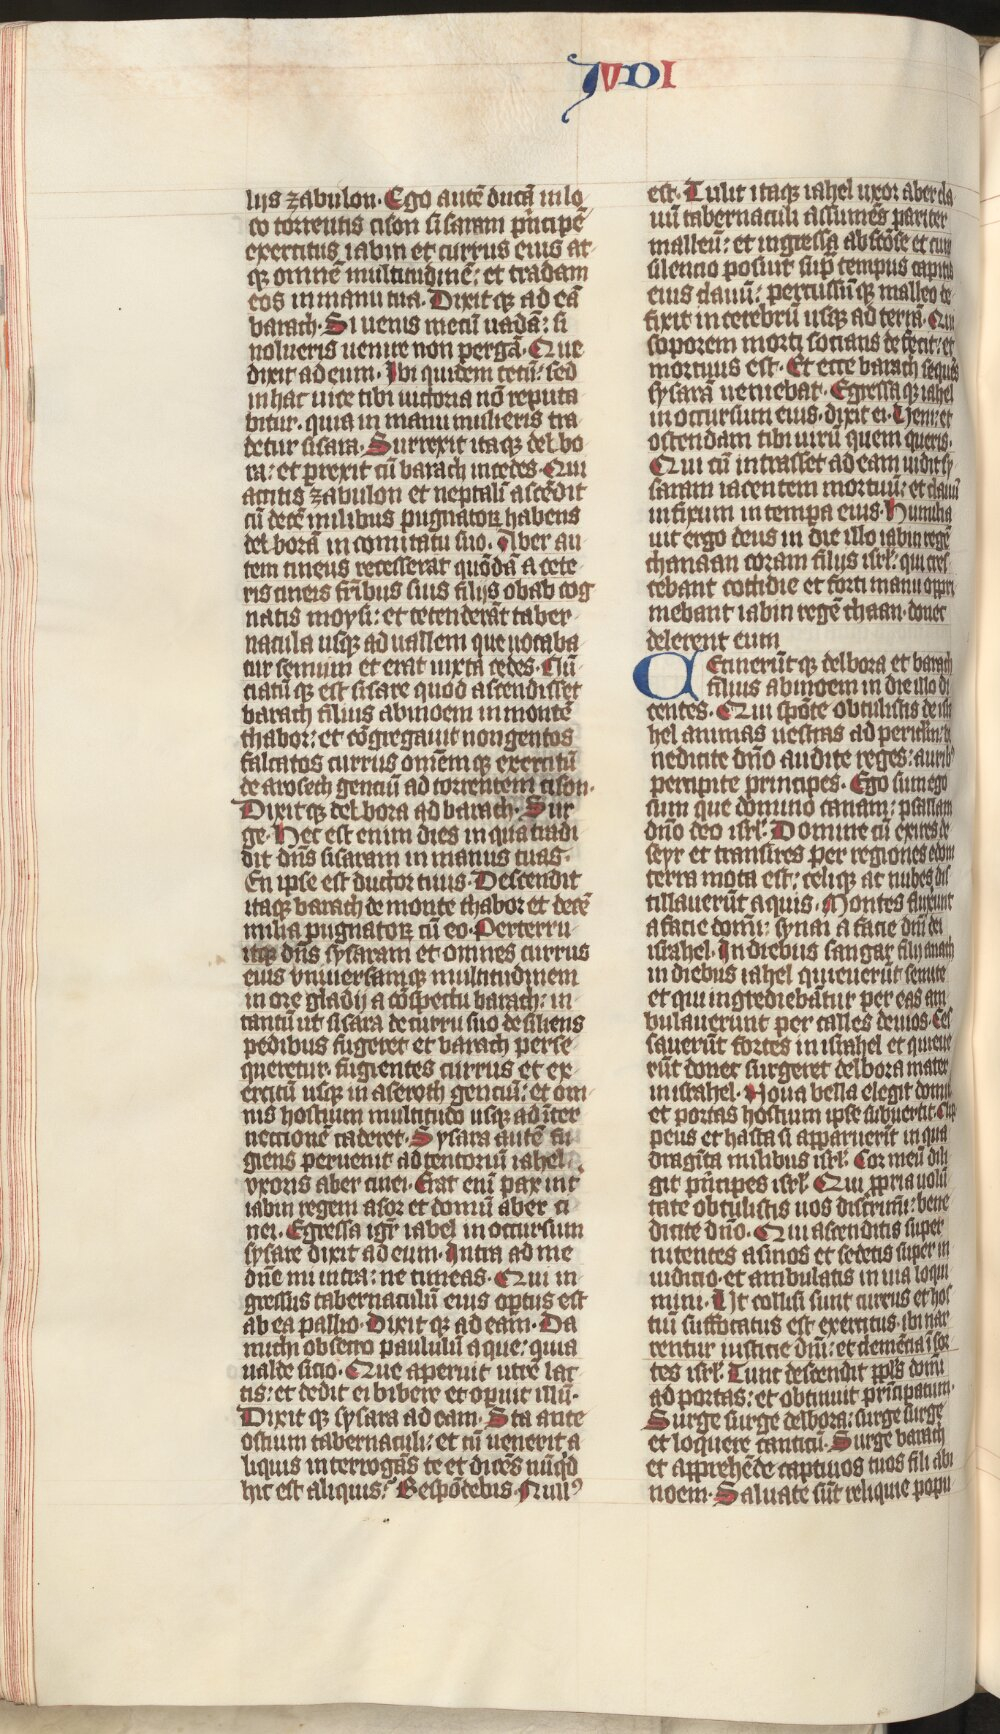 JVDI
liis zabulon. Ego autē ducā in lo
co torrentis cison sisaram pͥncipē
exercitus iabin et currus eius at
qꝫ omnē multitudinē: et tradam
eos in manu tua. Dixit qꝫ ad eā
barach. Si uenis mecū uadā: si
nolueris uenire non pergā. Que
dixit ad eum. Ibi quidem tecū: sed
in hac uice tibi uictoria nō reputa
bitur. quia in manu mulieris tra
detur sisara. Surrexit itaqꝫ delbo
ra: et prexit cū barach in cedes. Qui
accitis zabulon et neptalī ascēdit
cū decē milibus pugnatoꝝ habens
delborā in comitatu suo. Aber au
tem cineus recesserat quōdā a cete
ris cineis fr̄ibus suis filijs obab cog
natis moysi: et tetenderāt taber
nacula usqꝫ ad uallem que uocaba
tur sennim et erat iuxta cedes. Nū
ciatū qꝫ est sisare quod ascendisset
barach filius abinoem in montē
thabor: et cōgregauit nongentos
falcatos currus omēm qꝫ exercitū
de aroseth genciū ad torrentem cison.
Dixit qꝫ delbora ad barach. Sur
ge. Hec est enim dies in qua tradi
dit dn̄s sisaram in manus tuas.
En ipse est ductor tuus. Descendit
itaqꝫ barach de monte thabor et decē
milia pugnatoꝝ cū eo. Perterru
itqꝫ dn̄s sysaram et omnes currus
eius vniuersamqꝫ multitudinem
in ore gladij a cōspectu barach: in
tantū ut sisara de curru suo desiliens
pedibus fugeret et barach perse
queretur fugientes currus et ex
ercitū usqꝫ in aseroth genciū: et om
nis hostium multitudo usqꝫ ad iter
neccionē caderet. Sysara autē fu
giens peruenit ad tentoriū iahel
vxoris aber cinei. Erat enī pax int̄
iabin regem asor et domū aber ci
nei. Egressa igr̄ iahel in occursum
sysare dixit ad eum. Intra ad me
dn̄e mi intra: ne timeas. Qui in
gressus tabernaculū eius optus est
ab ea pallio. Dixit qꝫ ad eam. Da
michi obsecro paululū aque: quia
ualde sicio. Que aperuit utrē lac
tis: et dedit ei bibere et opuit illū.
Dixit qꝫ sysara ad eam. Sta ante
ostium tabernaculi: et cū uenerit a
liquis interrogās te et dicēs nūqͥd
hic est aliquis: Respōdebis. Nullꝰ
est. Tulit itaqꝫ iahel uxor aber cla
uū tabernaculi assumēs pariter
malleū: et ingressa abscōse et cum
silencio posuit sup̄ tempus capitis
eius clauū: percussū qꝫ malleo de
fixit in cerebrū usqꝫ ad terrā. Qui
soporem morti socians defecit: et
mortuus est. Et ecce barach sequēs
sysarā ueniebat. Egressa qꝫ iahel
in occursum eius. dixit ei. Veni: et
ostendam tibi uirū quem queris.
Qui cū intrasset ad eam uidit sy
saram iacentem mortuū: et clauū
infixum in tempa eius. Humilia
uit ergo deus in die illo iabin regē
chanaan coram filijs isrl̄: qui cres
cebant cottidie et forti manu oppri
mebant iabin regē chaan. donec
delerent eum
Cecinerūt qꝫ delbora et barach
filius abinoem in die illo di
centes. Qui spōte obtulistis de isra
hel animas uestras ad periclm̄: be
nedicite dn̄o audite reges: auribꝰ
percipite principes. Ego sum ego
sum que domino canam: psallam
dn̄o deo isrl̄. Domine cū exires de
seyr et transires per regiones edom
terra mota est: celiqꝫ ac nubes dis
tillauerūt aquis. Montes fluxerunt
a facie domī: synai a facie dn̄i dei
israhel. In diebus sangar filij anath
in diebus iahel quieuerūt semite
et qui ingrediebātur per eas am
bulauerunt per calles deuios. Ces
sauerūt fortes in israhel et quieue
rūt donec surgeret delbora mater
in israhel. Noua bella elegit domī
et portas hostium ipse subuertit. Cli
peus et hasta si apparuerīt in qua
draginta milibus isrl̄. Cor meū dili
git pͥncipes isrl̄. Qui ꝓpria uolū
tate obtulistis uos discrim̄: bene
dicite dn̄o. Qui ascenditis super
nitentes asinos et sedetis super in
iudicio. et ambulatis in uia loqui
mini. Ubi collisi sunt currus et hos
tiū suffocatus est exercitus. ibi nar
rentur iusticie dn̄i: et clemēcia ī for
tes isrl̄. Tunc descendit ppl̄s domī
ad portas: et obtinuit pͥncipatum.
Surge surge delbora: surge surge
et loquere canticū. Surge barach
et apprehēde captiuos tuos fili abi
noem. Saluate sūt reliquie popu